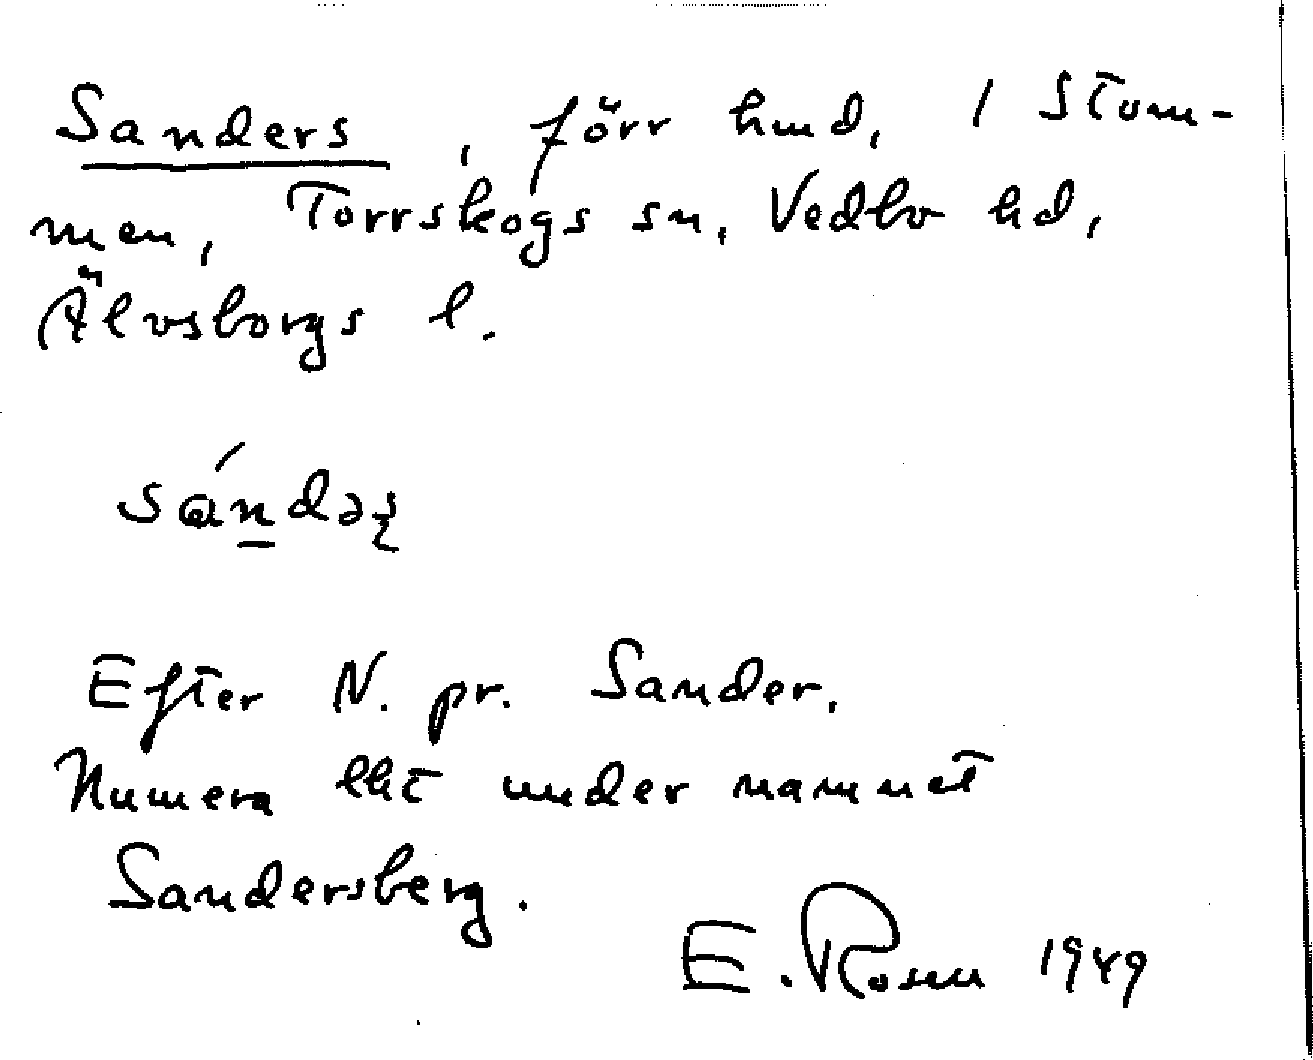 Sanders, förr hmd, / Stom-
men, Torrskogs sn, Vedbo hd,
Älvsborgs l.
sándəʂ
Efter N. pr. Sander.
Numera lht under namnet
Sandersberg.
E. Rosen 1949